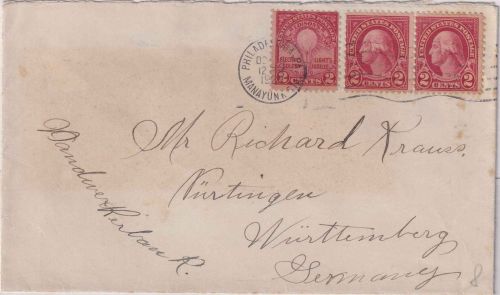 PHILADELPHIA, PA.
12
19
MANAYUNK
UNITED STATES POSTAGE
2 CENTS 2
UNITED STATES POSTAGE
2 CENTS 2
ELECTRIC LIGHT'S
GOLDEN JUBILEE
2 CENTS 2
Mr Richard Krauss.
Nürtingen
Württemberg
Germany
8